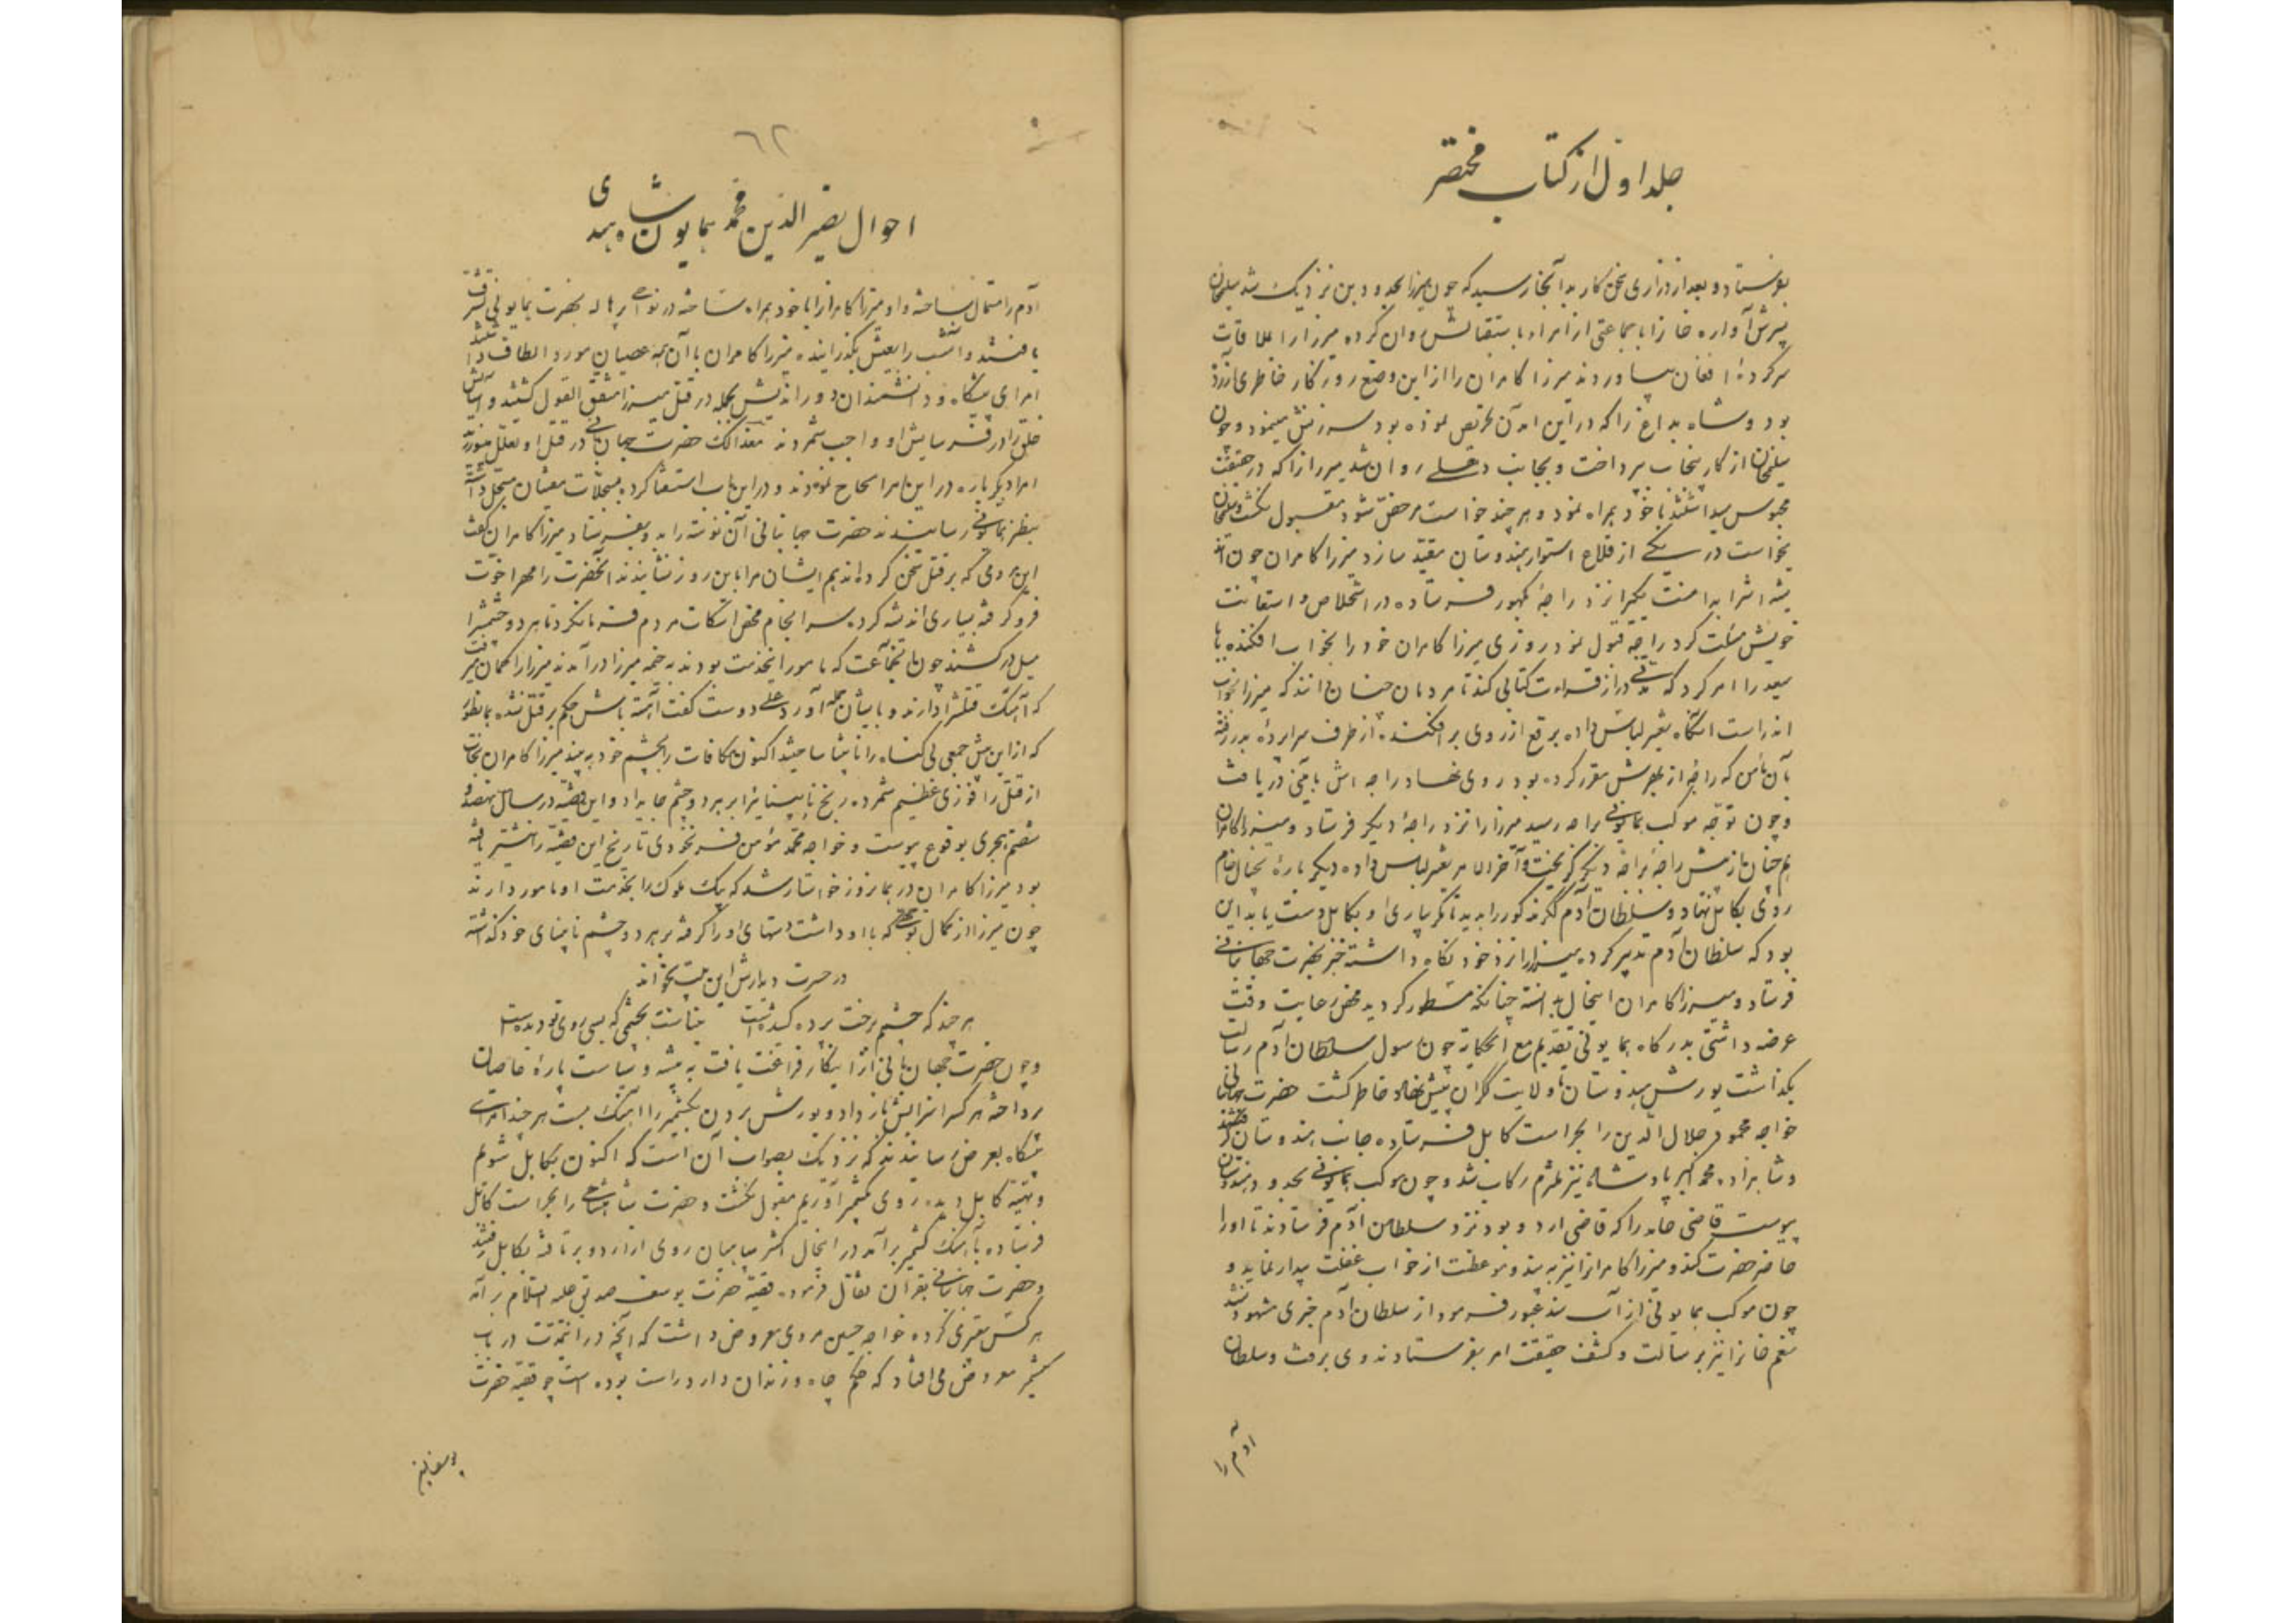 جلد اول از کتاب مختصر
بفرستاد و بعد از زاری سخن کار بدآنجا رسید که چون میرزا بحدود بن نزدیک شد سلیمخان
پسرش آواره خان را با جماعتی از امراء باستقبالش روان کرده میرزا را بملاقات
سرکردهٔ افغان بیاوردند میرزا کامران را از این وضع روزکار خاطری آزرده
بود و شاه بداغ را که در این امدن تحریص نموده بود سرزنش مینمود و چون
سلیمخان از کار پنجاب پرداخت و بجانب دهلی روان شد میرزا را که در حقیقت
محبوس میداشتند با خود همراه نمود و هر چند خواست مرخص شود مقبول نکشت و سلیمخان
بخواست در یکی از قلاع استوار هندوستان مقید سازد میرزا کامران چون این
نزد راجهٔ کهور فرستاده در استخلاص و استعانت
خویش مسئلت کرد راجه قبول نمود روزی میرزا کامران خود را بخواب افکنده بابا
سعید را امر کرد که مدتی دراز قراءت کتابی کند تا مردمان چنان دانند که میرزا بخواب
اندر است آنکاه تغییر لباس داده برقع از روی بر افکنده از طرف سراپرده بدر رفته
بآن مأمن که راجه از بهرش مقرر کرده بود روی نهاد راجه اش بایمنی دریافت
و چون توجه موکب همایونی براجه رسید میرزا را نزد راجهٔ دیکر فرستاد و میرزا کامران
همچنان از پیش راجهٔ براجهٔ دیکر کریخت و آخرالامر تغییر لباس داده دیکر باره بخیال خام
روی بکابل نهاد و سلطان آدم ککر مذکور را بدید تا مکر بیاری او بکابل دست یابد این
بود که سلطان آدم تدبیر کرده میرزا را نزد خود نکاه داشته خبر بحضرت جهانبانی
فرستاد و میرزا کامران اینحال بدانسته چنانکه مسطور کردید محض رعایت وقت
عرضه داشتی بدرکاه همایونی تقدیم مع الحکایة چون رسول سلطان آدم رسالت
بکذاشت یورش هندوستان تا ولایت ککران پیش نهاد خاطر کشت حضرت جهانبانی
خواجه محمود جلال الدین را بحراست کابل فرستاده جانب هندوستان کرفتند
و شاهزاده محمد اکبر پادشاه نیز ملتزم رکاب شد و چون موکب همایونی بحدود هندوستان
پیوست قاضی حامد را که قاضی اردو بود نزد سلطان آدم فرستادند تا او را
حاضر حضرت کند و میرزا کامران را نیز به پند و موعظت از خواب غفلت بیدار نماید و
چون موکب همایونی از آب سند عبور فرمود از سلطان آدم خبری مشهود نشد
منعم خان را نیز برسالت و کشف حقیقت امر بفرستادند وی برفت و سلطان
آدم را
٦٢
احوال نصیر الدین محمد همایون شاه هندی
آدم را مستمال ساخته و او میرزا کامران را با خود همراه ساخته در نواحی پرهاله بحضرت همایونی تشرف
یافتند و آنشب را بعیش بکذرانیده میرزا کامران با آن همه عصیان مورد الطاف داشتند
امرای پیشکاه و دانشمندان دور اندیش بجمله در قتل میرزا متفق القول کشتند و آسایش
خلق را در فرسایش او واجب شمردند معذالک حضرت جهانبانی در قتل او تعلل میورزید
امرا دیکر باره در این امر الحاح نمودند و در این باب استفتا کرده بسجلات مفتیان مسجل داشته
بنظر همایونی رسانیدند حضرت جهانبانی آن نوشته را بدو بفرستاد میرزا کامران کفت
این مردمی که بر قتل سخن کرده اند هم ایشان مرا باین روز نشانیدند آنحضرت را مهر اخوت
فرو کرفته بسیاری اندیشه کرده سرانجام محض اسکات مردم فرمان کرد تا هر دو چشمش را
میل در کشیدند چون آنجماعت که مأمور اینخدمت بودند به خیمه میرزا در آمدند میرزا را کمان میرفت
که آهنک قتلش را دارند و با ایشان حمله آورد علی دوست کفت آهسته باش حکم بر قتل نشده بمانطور
که از این پیش جمعی بی کناه را نابینا ساختید اکنون مکافات را بچشم خود به بیند میرزا کامران نجات
از قتل را فوزی عظیم شمرده رنج نابینائی را بر هر دو چشم جا بداد و این قضیه در سال نهصد و
شصتم هجری بوقوع پیوست و خواجه محمد مؤمن فرنخودی تاریخ این قضیه را نیشتر یافته
بود میرزا کامران در همانروز خواستار شد که بیک ملوک را بخدمت او مامور دارند
چون میرزا از کمال توجهی که با او داشت دستهای او را کرفته بر هر دو چشم نابینای خود کذاشته
در حسرت دیدارش این بیت بخواند
هر چند که چشمم برخت پرده کشیده است   بیناست بچشمی که بسی روی تو دیده است
و چون حضرت جهانبانی از اینکار فراغت یافت به تنبیه و سیاست پارهٔ عاصیان
پرداخته هر کس را سزایش باز داد و یورش بردن بکشمیر را آهنک بست هر چند امرای
پیشکاه بعرض رسانیدند که نزدیک بصواب آن است که اکنون بکابل شویم
و تهیه کابل دیده روی بکشمیر آوریم مقبول نکشت و حضرت شاهنشاهی را بحراست کابل
فرستاده بآهنک کشمیر برآمد در اینحال اکثر سپاهیان روی از اردو برتافته بکابل رفتند
و حضرت جهانبانی بقرآن تفأل فرمود قصهٔ حضرت یوسف صدیق علیه السلام برآمد
هر کس تعبیری کرده خواجه حسین مروی معروض داشت که آنچه در اینمدت در باب
کشمیر معروض می افتاد که حکم چاه و زندان دارد راست بوده است چه قصه حضرت